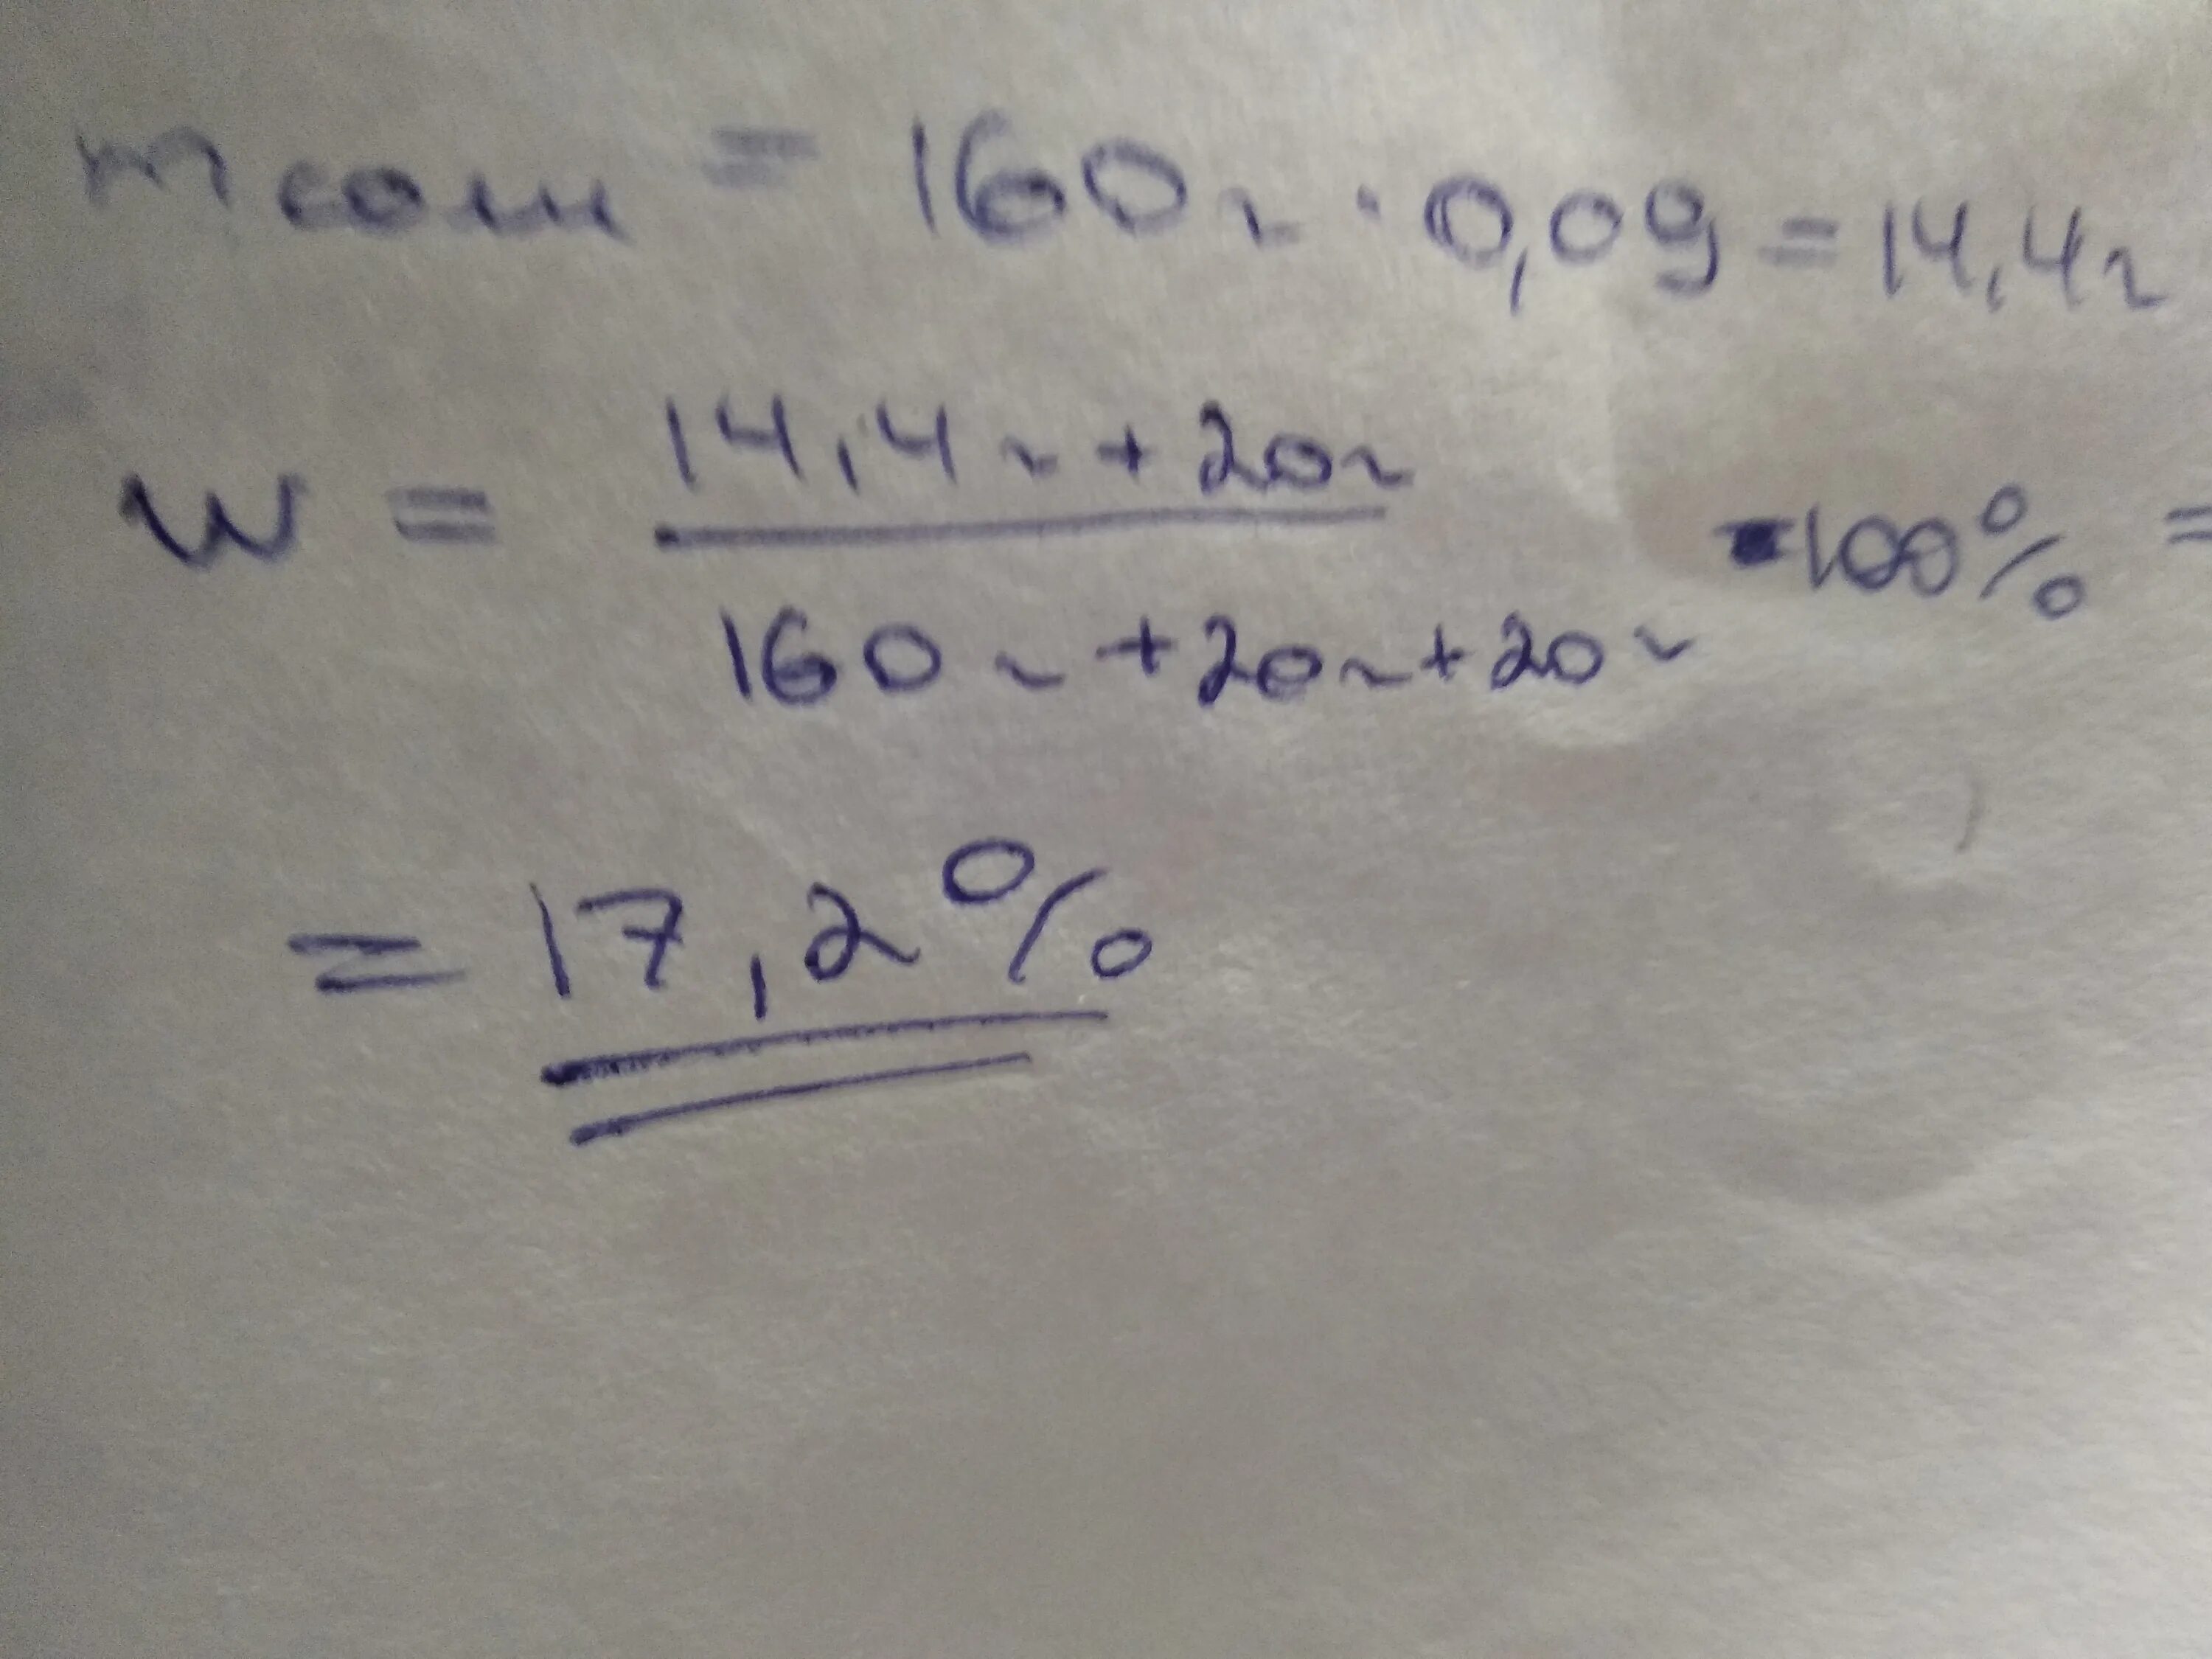 m соли = 160 г · 0,09 = 14,4 г
w = 14,4 г + 20 г / 160 г + 20 г + 20 г · 100% =
= 17,2%